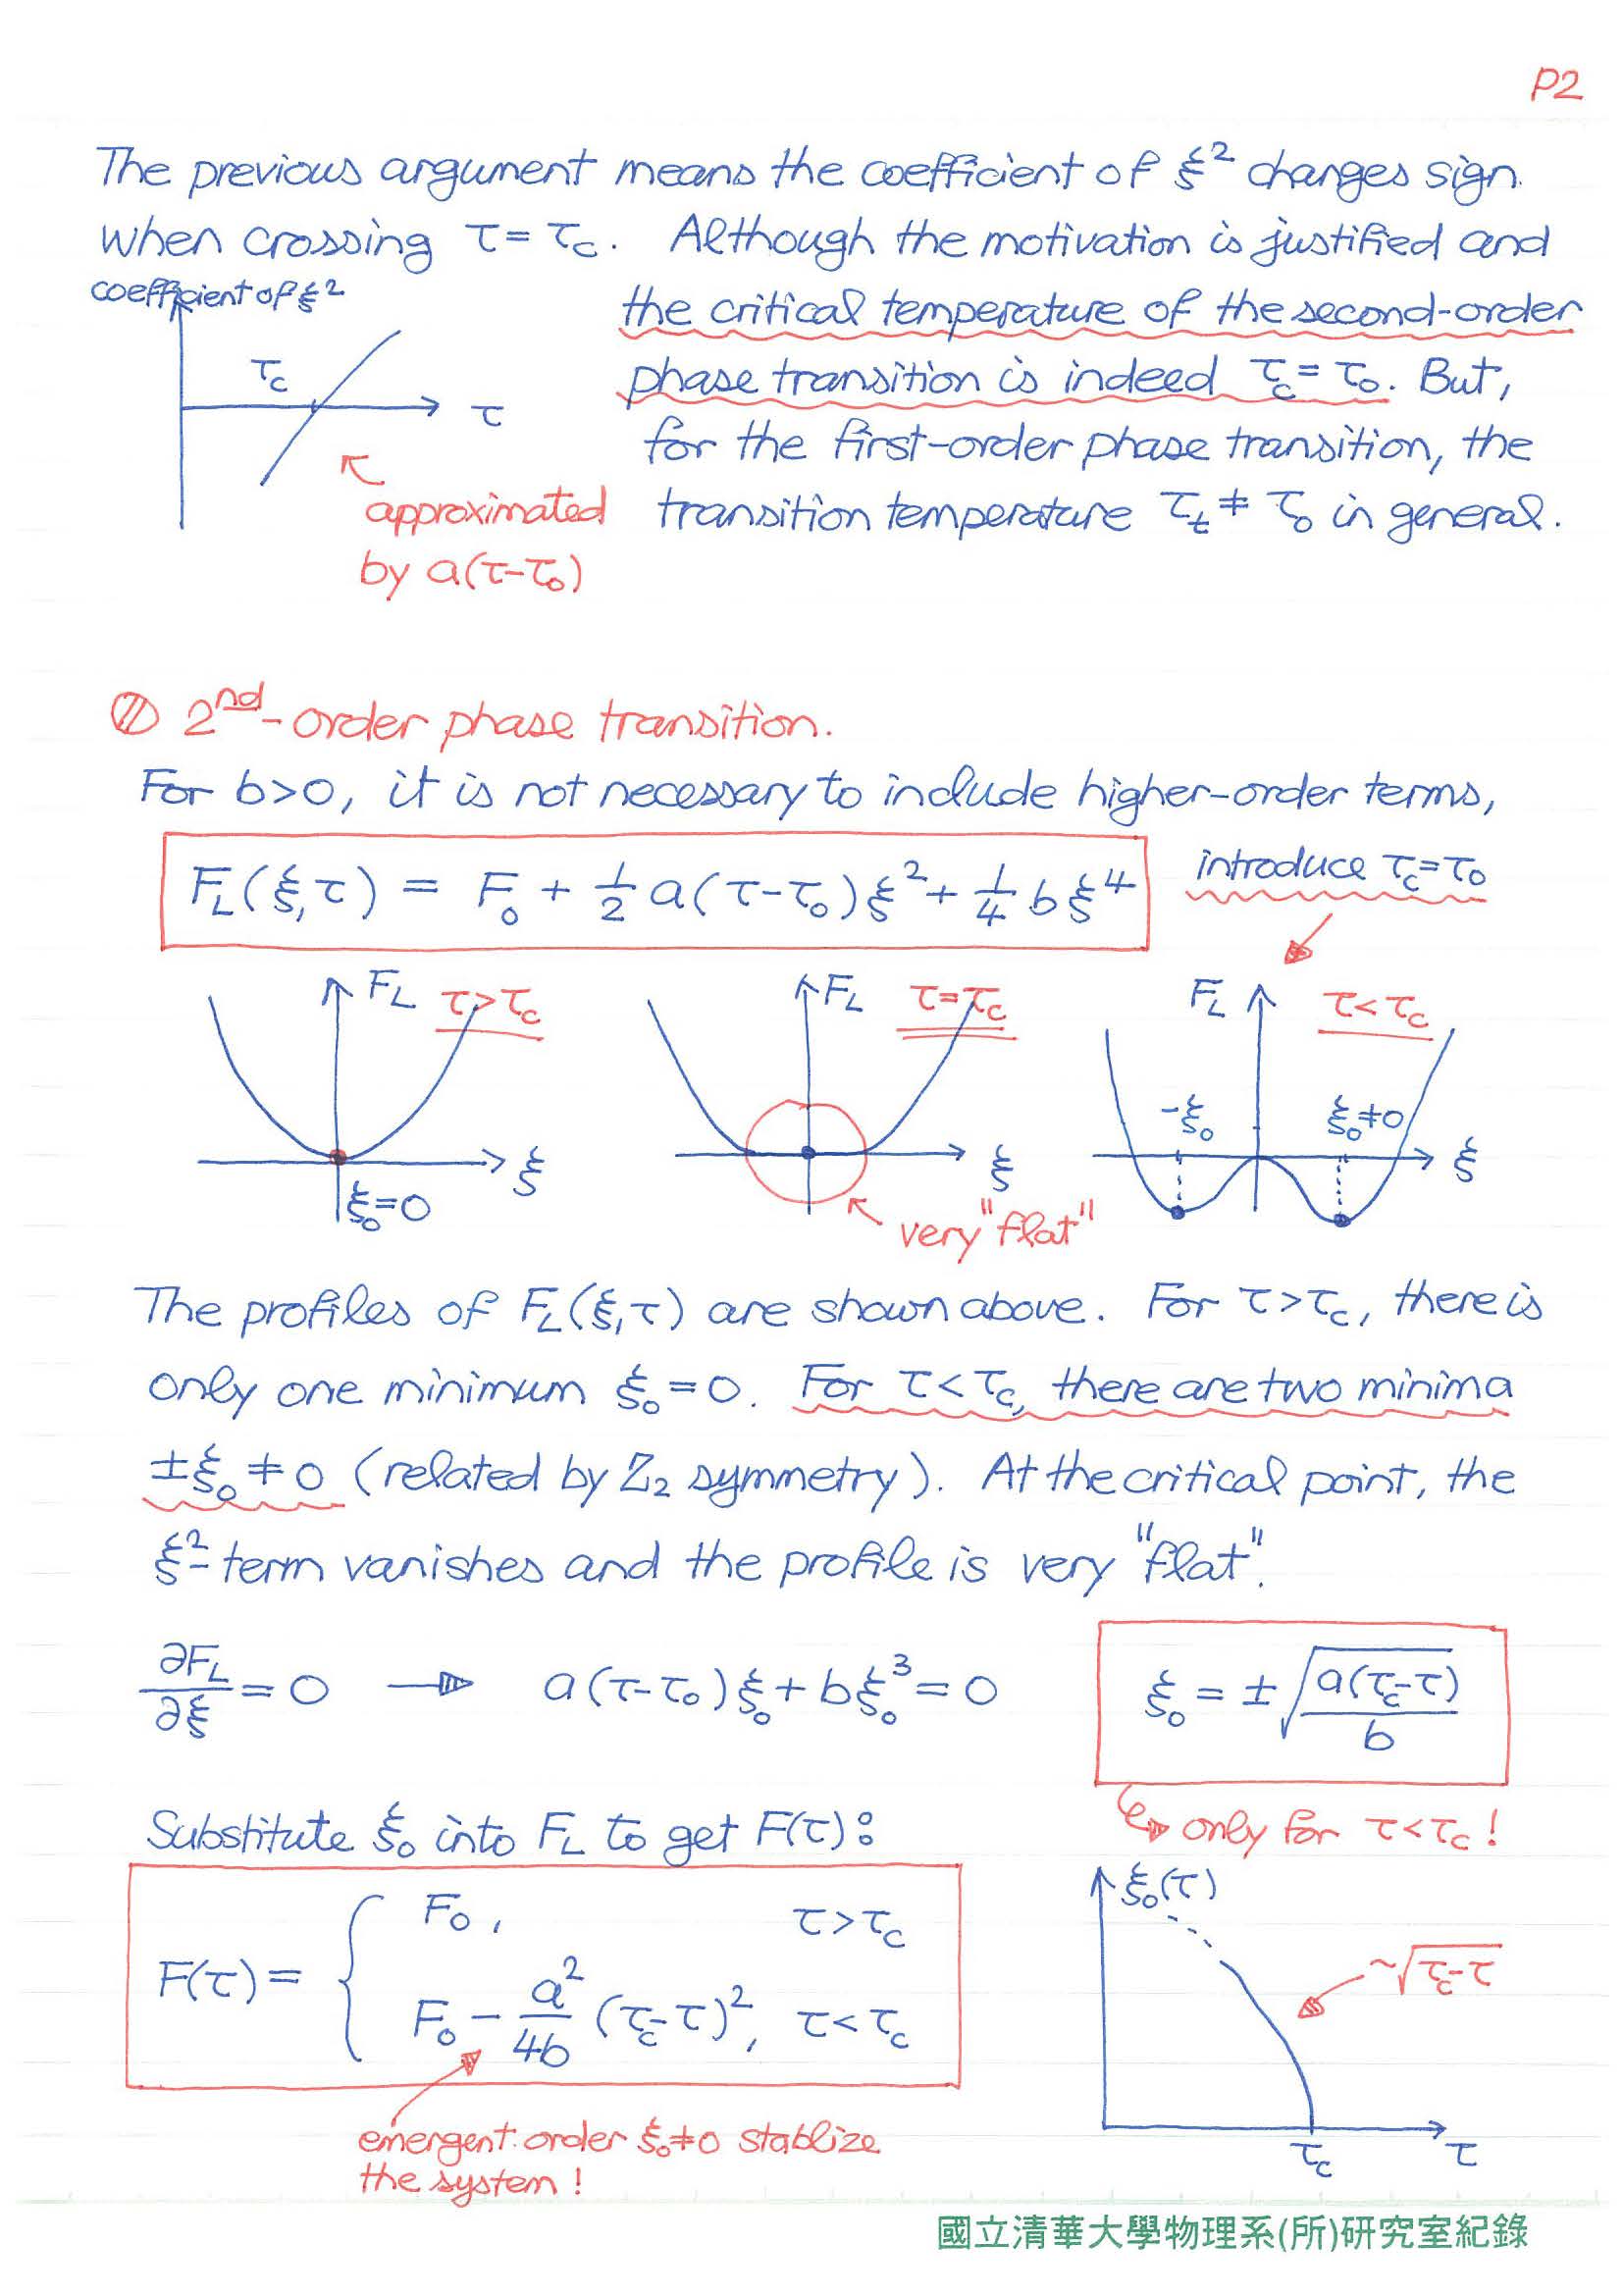 P2
The previous argument means the coefficient of ξ² changes sign
when crossing τ = τc. Although the motivation is justified and
coefficient of ξ²
the critical temperature of the second-order
τc
phase transition is indeed τc = τ₀. But,
τ
for the first-order phase transition, the
approximated
transition temperature τt ≠ τ₀ in general.
by a(τ-τ₀)
2nd-order phase transition.
For b>0, it is not necessary to include higher-order terms,
F_L(ξ,τ) = F₀ + 1/2 a(τ-τ₀)ξ² + 1/4 bξ⁴
introduce τc=τ₀
F_L τ>τc
F_L τ=τc
F_L τ<τc
-ξ₀ ξ₀≠0
ξ ξ ξ
ξ₀=0
very "flat"
The profiles of F_L(ξ,τ) are shown above. For τ>τc, there is
only one minimum ξ₀=0. For τ<τc, there are two minima
±ξ₀≠0 (related by Z₂ symmetry). At the critical point, the
ξ²-term vanishes and the profile is very "flat".
∂F_L/∂ξ = 0 → a(τ-τ₀)ξ₀ + bξ₀³ = 0
ξ₀ = ±√(a(τc-τ)/b)
Substitute ξ₀ into F_L to get F(τ):
only for τ<τc!
F(τ) = { F₀, τ>τc
F₀ - a²/4b (τc-τ)², τ<τc
ξ₀(τ)
~√(τc-τ)
emergent order ξ₀≠0 stablize
the system!
τc τ
國立清華大學物理系(所)研究室紀錄